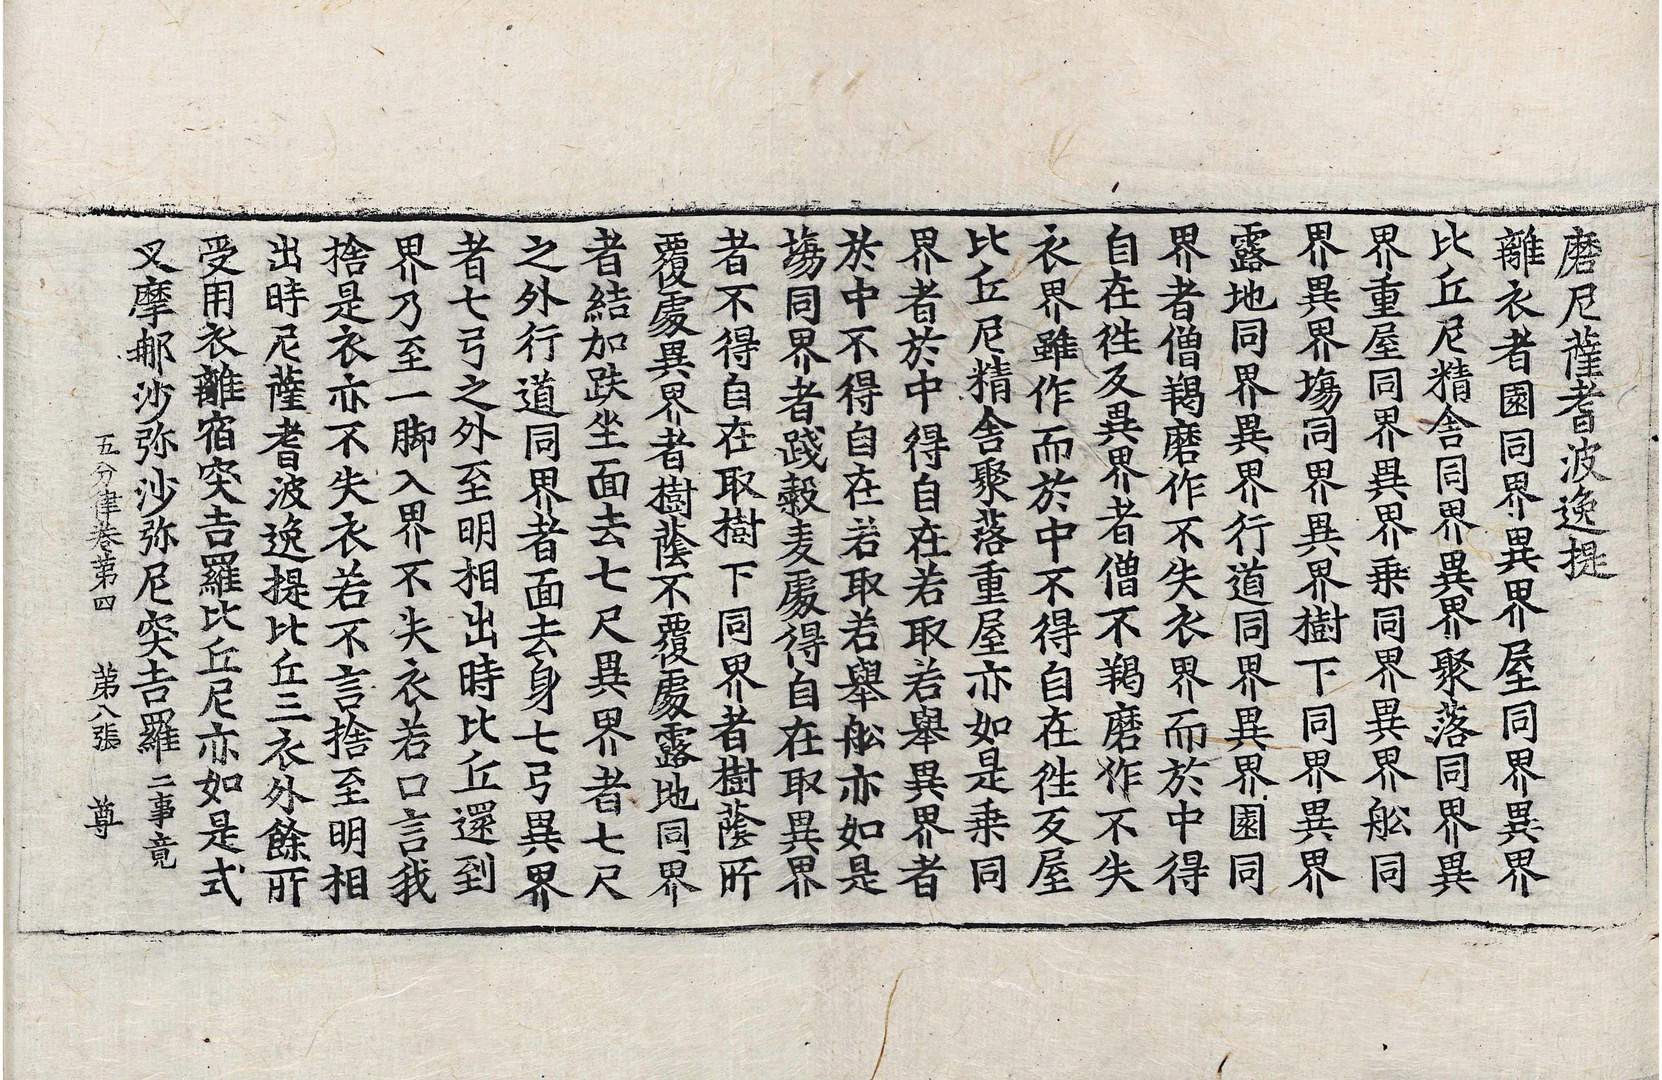 磨尼薩耆波逸提
離衣者園同界異界屋同界異界
比丘尼精舍同界異界聚落同界異
界重屋同界異界乗同界異界舩同
界異界塲同界異界樹下同界異界
露地同界異界行道同界異界園同
界者僧羯磨作不失衣界而於中得
自在徃反異界者僧不羯磨作不失
衣界雖作而於中不得自在徃反屋
比丘尼精舍聚落重屋亦如是乗同
界者於中得自在若取若舉異界者
於中不得自在若取若舉舩亦如是
塲同界者踐穀麦處得自在取異界
者不得自在取樹下同界者樹蔭所
覆處異界者樹蔭不覆處露地同界
者結加趺坐面去七尺異界者七尺
之外行道同界者面去身七弓異界
者七弓之外至明相出時比丘還到
界乃至一脚入界不失衣若口言我
捨是衣亦不失衣若不言捨至明相
出時尼薩耆波逸提比丘三衣外餘所
受用衣離宿突吉羅比丘尼亦如是式
叉摩那沙弥沙弥尼突吉羅 二事竟
五分律卷第四 第八張 尊